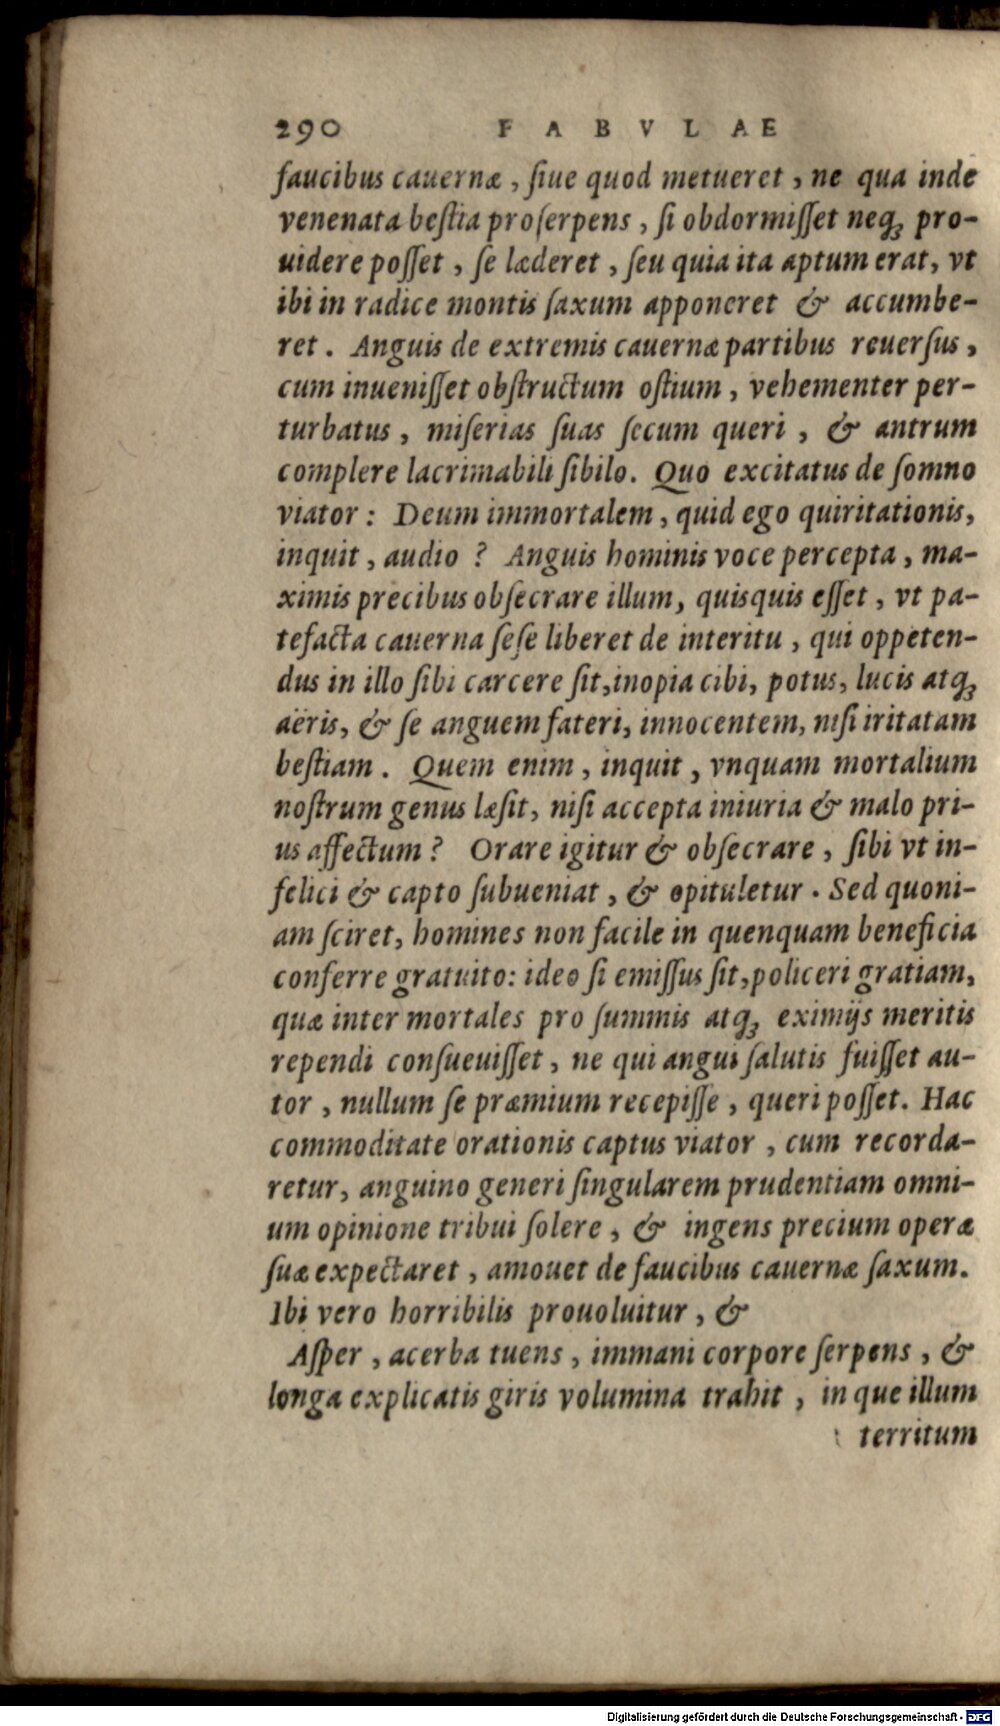 290 FABVLAE
faucibus cauernæ, ſiue quod metueret, ne qua inde
venenata beſtia proſerpens, ſi obdormiſſet neqꝫ pro-
uidere poſſet, ſe læderet, ſeu quia ita aptum erat, vt
ibi in radice montis ſaxum apponeret & accumbe-
ret. Anguis de extremis cauernæ partibus reuerſus,
cum inueniſſet obſtructum oſtium, vehementer per-
turbatus, miſerias ſuas ſecum queri, & antrum
complere lacrimabili ſibilo. Quo excitatus de ſomno
viator: Deum immortalem, quid ego quiritationis,
inquit, audio? Anguis hominis voce percepta, ma-
ximis precibus obſecrare illum, quisquis eſſet, vt pa-
tefacta cauerna ſeſe liberet de interitu, qui oppeten-
dus in illo ſibi carcere ſit, inopia cibi, potus, lucis atqꝫ
aëris, & ſe anguem fateri, innocentem, niſi iritatam
beſtiam. Quem enim, inquit, vnquam mortalium
noſtrum genus læſit, niſi accepta iniuria & malo pri-
us affectum? Orare igitur & obſecrare, ſibi vt in-
felici & capto ſubueniat, & opituletur. Sed quoni-
am ſciret, homines non facile in quenquam beneficia
conferre gratuito: ideo ſi emiſſus ſit, policeri gratiam,
quæ inter mortales pro ſummis atqꝫ eximijs meritis
rependi conſueuiſſet, ne qui angui ſalutis fuiſſet au-
tor, nullum ſe præmium recepiſſe, queri poſſet. Hac
commoditate orationis captus viator, cum recorda-
retur, anguino generi ſingularem prudentiam omni-
um opinione tribui ſolere, & ingens precium operæ
ſuæ expectaret, amouet de faucibus cauernæ ſaxum.
Ibi vero horribilis prouoluitur, &
Aſper, acerba tuens, immani corpore ſerpens, &
longa explicatis giris volumina trahit, in que illum
territum
Digitalisierung gefördert durch die Deutsche Forschungsgemeinschaft - DFG